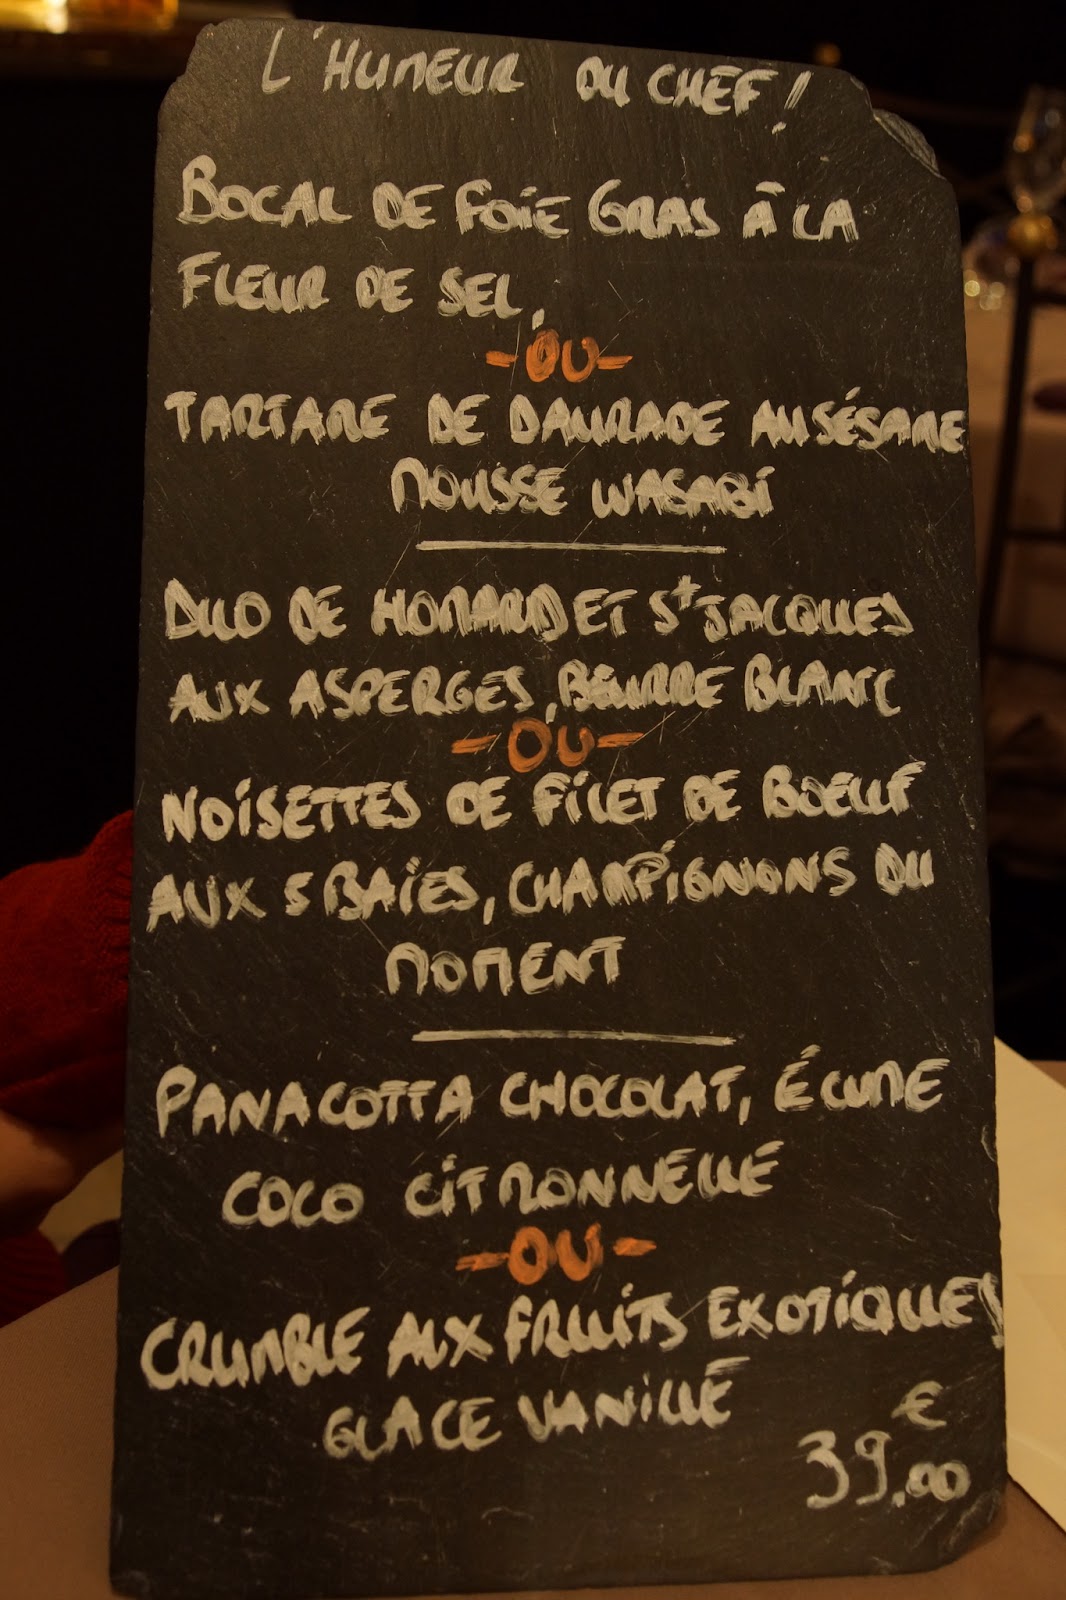 L'HUMEUR DU CHEF!
BOCAL DE FOIE GRAS À LA
FLEUR DE SEL,
-OU-
TARTARE DE DAURADE AU SÉSAME
MOUSSE WASABI
DUO DE HOMARD ET St JACQUES
AUX ASPERGES, BEURRE BLANC
-OU-
NOISETTES DE FILET DE BOEUF
AUX 5 BAIES, CHAMPIGNONS DU
MOMENT
PANACOTTA CHOCOLAT, ÉCUME
COCO CITRONNELLE
-OU-
CRUMBLE AUX FRUITS EXOTIQUES
GLACE VANILLE
€
39.00